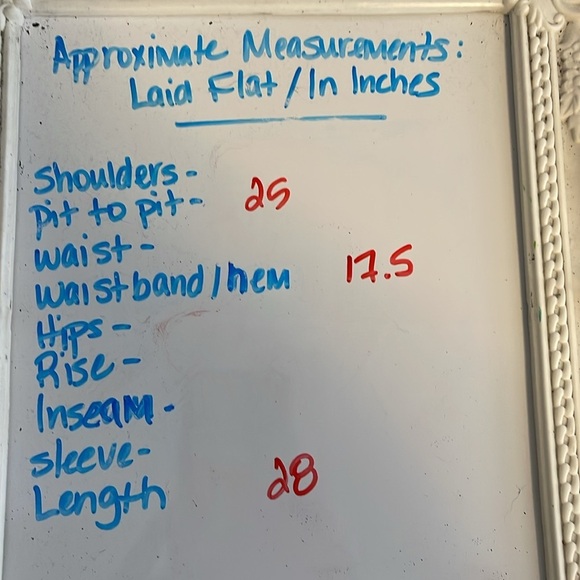 Approximate Measurements:
Laid Flat / In Inches
Shoulders -
pit to pit - 25
waist -
waistband / hem 17.5
Hips -
Rise -
Inseam -
sleeve -
Length 28